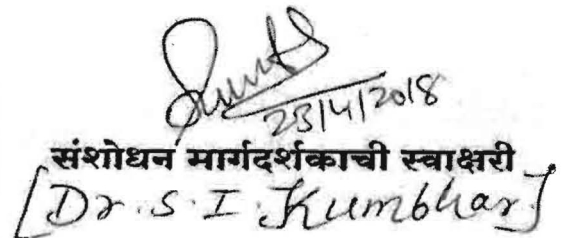 23/4/2018
संशोधन मार्गदर्शकाची स्वाक्षरी
[Dr. S. I. Kumbhar]